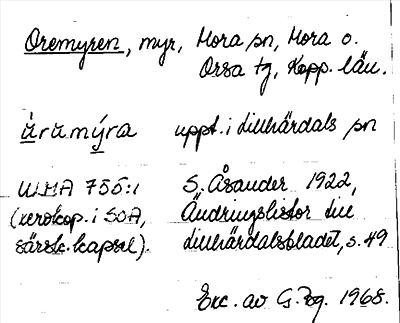 Oremyren, myr, Mora sn, Mora o.
Orsa tg, Kopp. län.
ùrùmýra uppt. i Lillhärdals sn
ULMA 755:1 S. Åsander 1922,
(xerokop. i SOA, Ändringslistor till
särsk. kapsel). Lillhärdalsbladet, s. 49
Exc. av G. Pg. 1968.